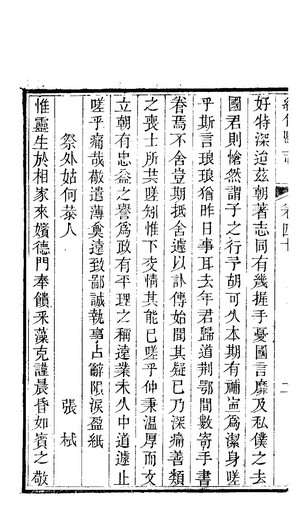 好特深迨兹朝著志同有幾握手憂國言靡及私僕之去
國君則愴然謂子之行予胡可久本期有補豈爲潔身嗟
乎斯言琅琅猶昨日事耳去年君歸道荆鄂間數寄手書
眷焉不舍豈期抵舍遽以訃傳始聞其疑已乃深痛善類
之喪士所共嗟知惟下交情其能已嗟乎仲秉温厚而文
立朝有忠益之譽爲政有平理之稱遠業未久中道遽止
嗟乎痛哉敬遣薄奠逹致鄙誠執事占辭隕淚盈紙
祭外姑何恭人
張栻
惟靈生於相家來嬪德門奉饋釆藻克謹晨昏如賓之敬
卷四十